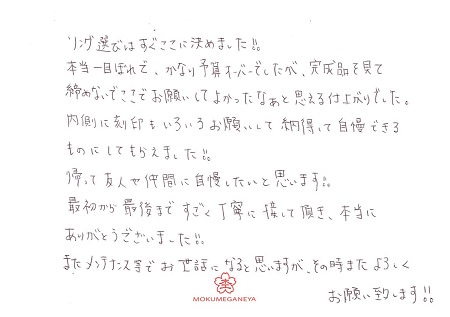 リング選びはすぐここに決めました!!
本当一目ぼれで、かなり予算オーバーでしたが、完成品を見て
締めないでここでお願いしてよかったなぁと思える仕上がりでした。
内側に刻印もいろいろお願いして納得して自慢できる
ものにしてもらえました!!
帰って友人や仲間に自慢したいと思います!!
最初から最後まですごく丁寧に接して頂き、本当に
ありがとうございました!!
またメンテナンス等でお世話になると思いますが、その時またよろしく
お願い致します!!
MOKUMEGANEYA